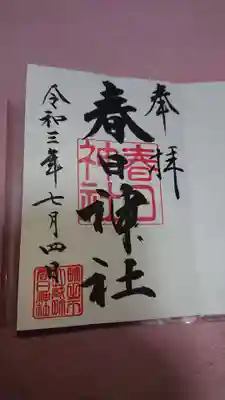 奉拝
春日神社
春日神社
令和三年七月四日